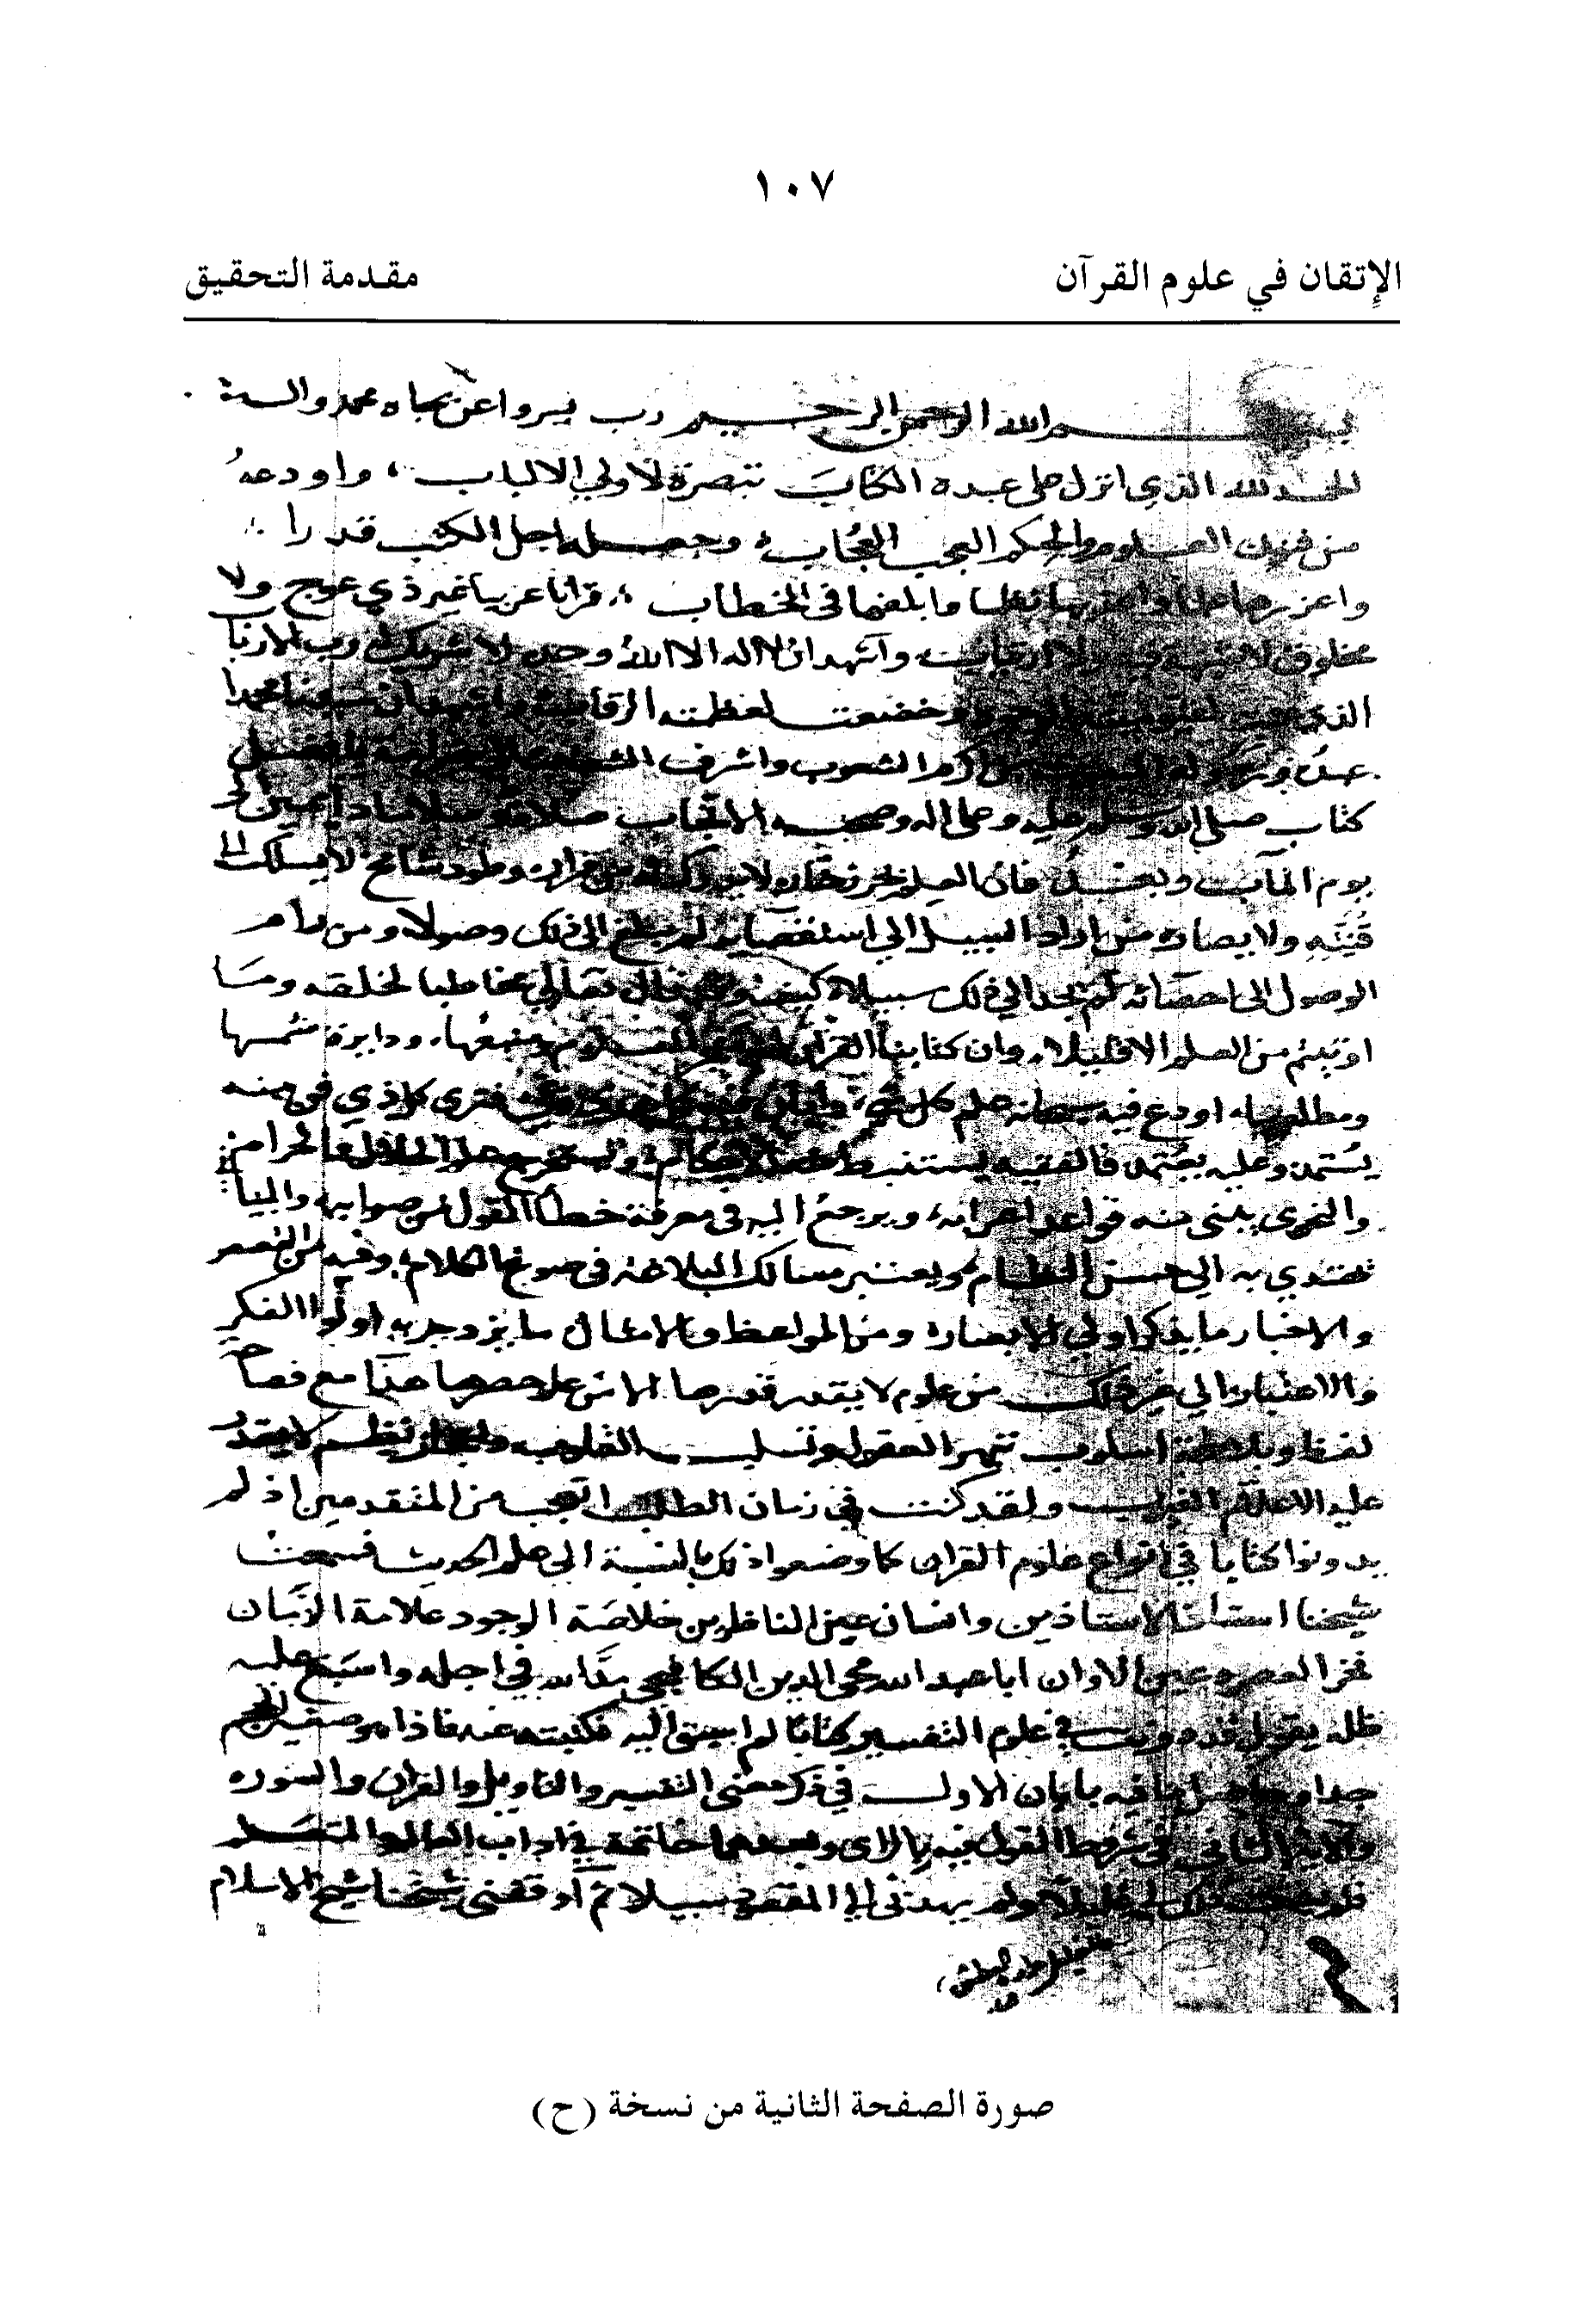 ١٠٧
الإتقان في علوم القرآن
مقدمة التحقيق
بسم الله الرحمن الرحيم رب يسر واعن بجاه محمد واله
الحمد لله الذي انزل على عبده الكتاب تبصرة لاولي الالباب واودعه
من فنون العلوم والحكم العجب العجاب وجعله اجل الكتب قدرا
واغزرها علما واعذبها نظما وابلغها في الخطاب قرانا عربيا غير ذي عوج ولا
مخلوق لا شبهة فيه ولا ارتياب واشهد ان لا اله الا الله وحده لا شريك له رب الاربا
الذي لقيوميته وخضعت لعظمته الرقاب واشهد ان سيدنا محمدا
عبده ورسوله من اكرم الشعوب واشرف الشعاب الى خير امة بافضل
كتاب صلى الله وسلم عليه وعلى اله وصحبه الانجاب صلاة وسلاما دايمين الى
يوم الماب وبعد فان العلم بحر زخار لا يدرك له من قرار وطود شامخ لا يسلك الى
قنته ولا يصار من اراد السبيل الى استقصايه لم يبلغ الى ذلك وصولا ومن رام
الوصول الى احصائه لم يجد الى ذلك سبيلا كيف وقد قال تعالى مخاطبا لخلقه وما
اوتيتم من العلم الا قليلا وان كتابنا القران لهو مفجر العلوم ومنبعها ودايرة شمسها
ومطلعها اودع فيه سبحانه علم كل شيء وابان فيه كل هدي وغي فترى كل ذي فن منه
يستمد وعليه يعتمد فالفقيه يستنبط منه الاحكام ويستخرج حكم الحلال والحرام
والنحوي يبني منه قواعد اعرابه ويرجع اليه في معرفة خطا القول من صوابه والبيا
يهتدي به الى حسن النظام ويعتبر مسالك البلاغة في صوغ الكلام وفيه من القصص
والاخبار ما يذكر اولي الابصار ومن المواعظ والامثال ما يزدجر به اولوا الفكر
والاعتبار الى غير ذلك من علوم لا يقدر قدرها الا من علم حصرها هذا مع فصاحة
لفظ وبلاغة اسلوب تبهر العقول وتسلب القلوب واعجاز نظم لا يقدر
عليه الا علام الغيوب ولقد كنت في زمان الطلب اتعجب من المتقدمين اذ لم
يدونوا كتابا في انواع علوم القران كما وضعوا ذلك بالنسبة الى علم الحديث فسمعت
شيخنا استاذ الاستاذين وانسان عين الناظرين خلاصة الوجود علامة الزمان
فخر العصر وعين الاوان ابا عبد الله محي الدين الكافيجي مد الله في اجله واسبغ عليه
ظله يقول قد دونت في علوم التفسير كتابا لم اسبق اليه فكتبته عنه فاذا هو صغير الحجم
جدا وحاصل ما فيه بابان الاول في ذكر معنى التفسير والتاويل والقران والسوره
والاية الثاني في شروط القول فيه بالراي وبعدهما خاتمة في اداب العالم والمتعلم
فلم يشف ذلك لي غليلا ولم يهدني الى المقصود سبيلا ثم اوقفني شيخنا شيخ الاسلام
صورة الصفحة الثانية من نسخة (ح)